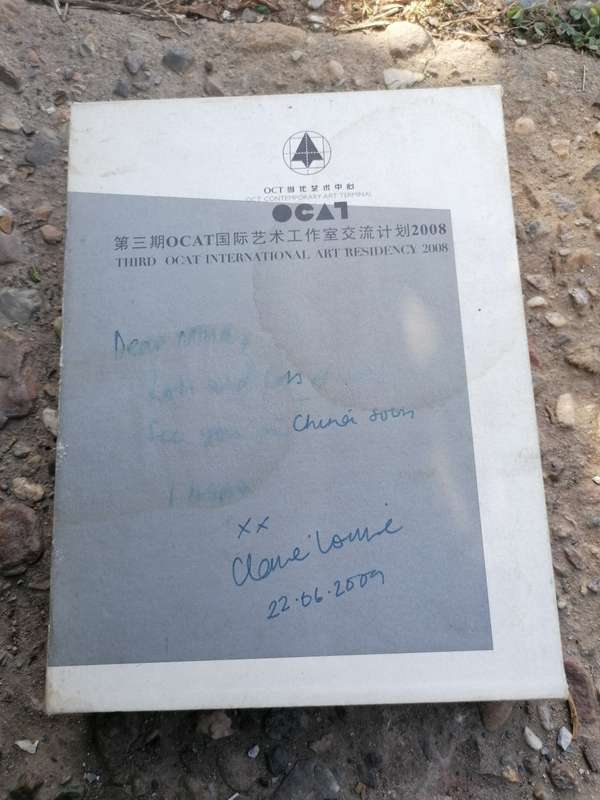 OCT当代艺术中心
OCT CONTEMPORARY ART TERMINAL
OCAT
第三期OCAT国际艺术工作室交流计划2008
THIRD OCAT INTERNATIONAL ART RESIDENCY 2008
Dear
See you China soon
xx
Claire Louise
22.06.2009